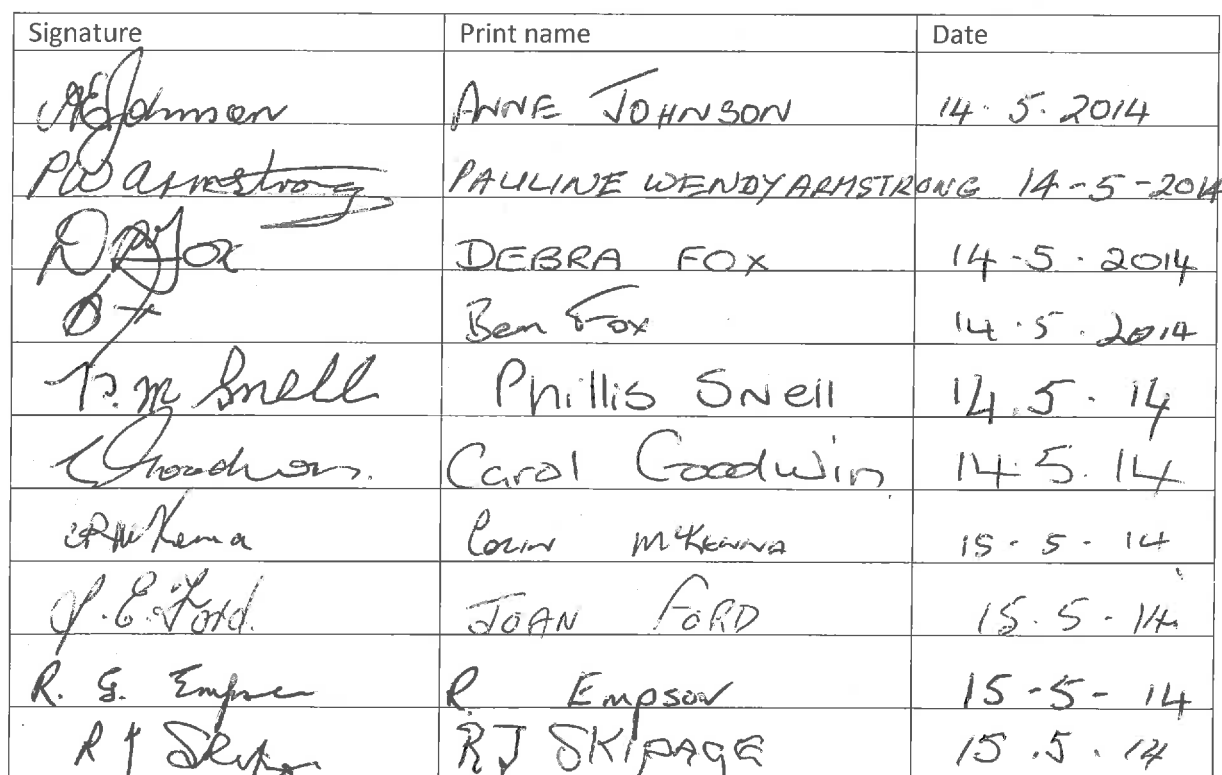 Signature Print name Date
AEJohnson ANNE JOHNSON 14.5.2014
PW Armstrong PAULINE WENDY ARMSTRONG 14-5-2014
D Fox DEBRA FOX 14-5.2014
Ben Fox 14.5.2014
P.M Snell Phillis Snell 14.5.14
C Goodwin. Carol Goodwin 14.5.14
McKenna Colin McKenna 15-5-14
J.E.Ford. JOAN FORD 15.5-14
R. G. Empson R. EMPSON 15-5-14
R J Skipage R J SKIPAGE 15.5.14